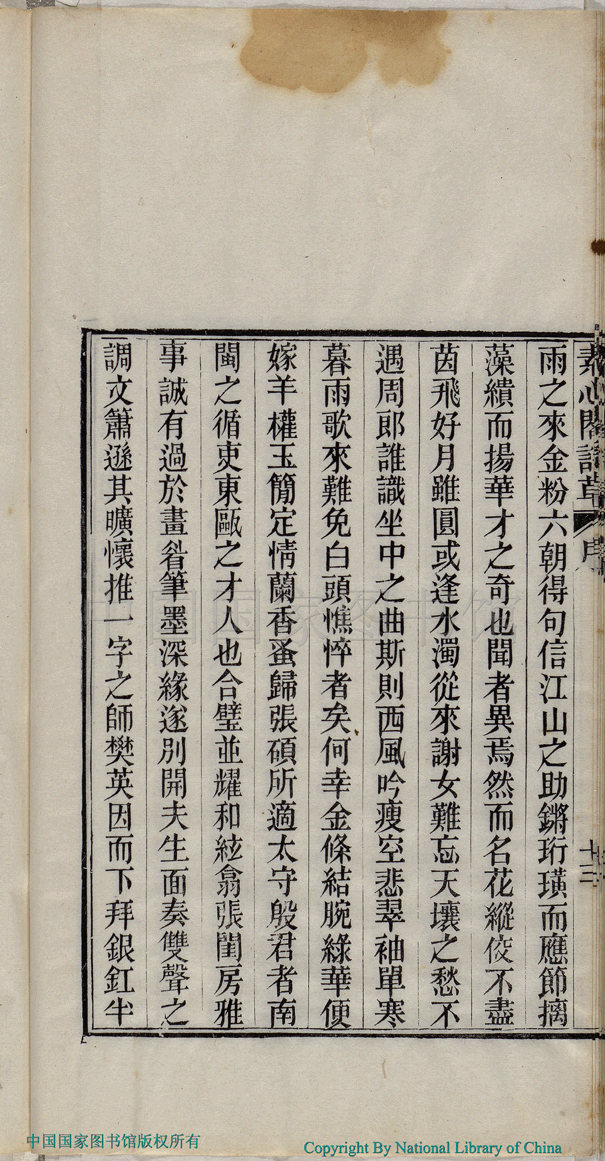 素心閣詩草 序 十三
雨之來金粉六朝得句信江山之助鏘珩璜而應節摛
藻繢而揚華才之奇也聞者異焉然而名花縱佼不盡
茵飛好月雖圓或逢水濁從來謝女難忘天壤之愁不
遇周郎誰識坐中之曲斯則西風吟瘦空悲翠袖單寒
暮雨歌來難免白頭憔悴者矣何幸金條結腕綠華便
嫁羊權玉簡定情蘭香蚤歸張碩所適太守殷君者南
閩之循吏東甌之才人也合璧並耀和絃翕張閨房雅
事誠有過於畫眉筆墨深緣遂別開夫生面奏雙聲之
調文簫遜其曠懷推一字之師樊英因而下拜銀釭半
中国国家图书馆版权所有
Copyright By National Library of China